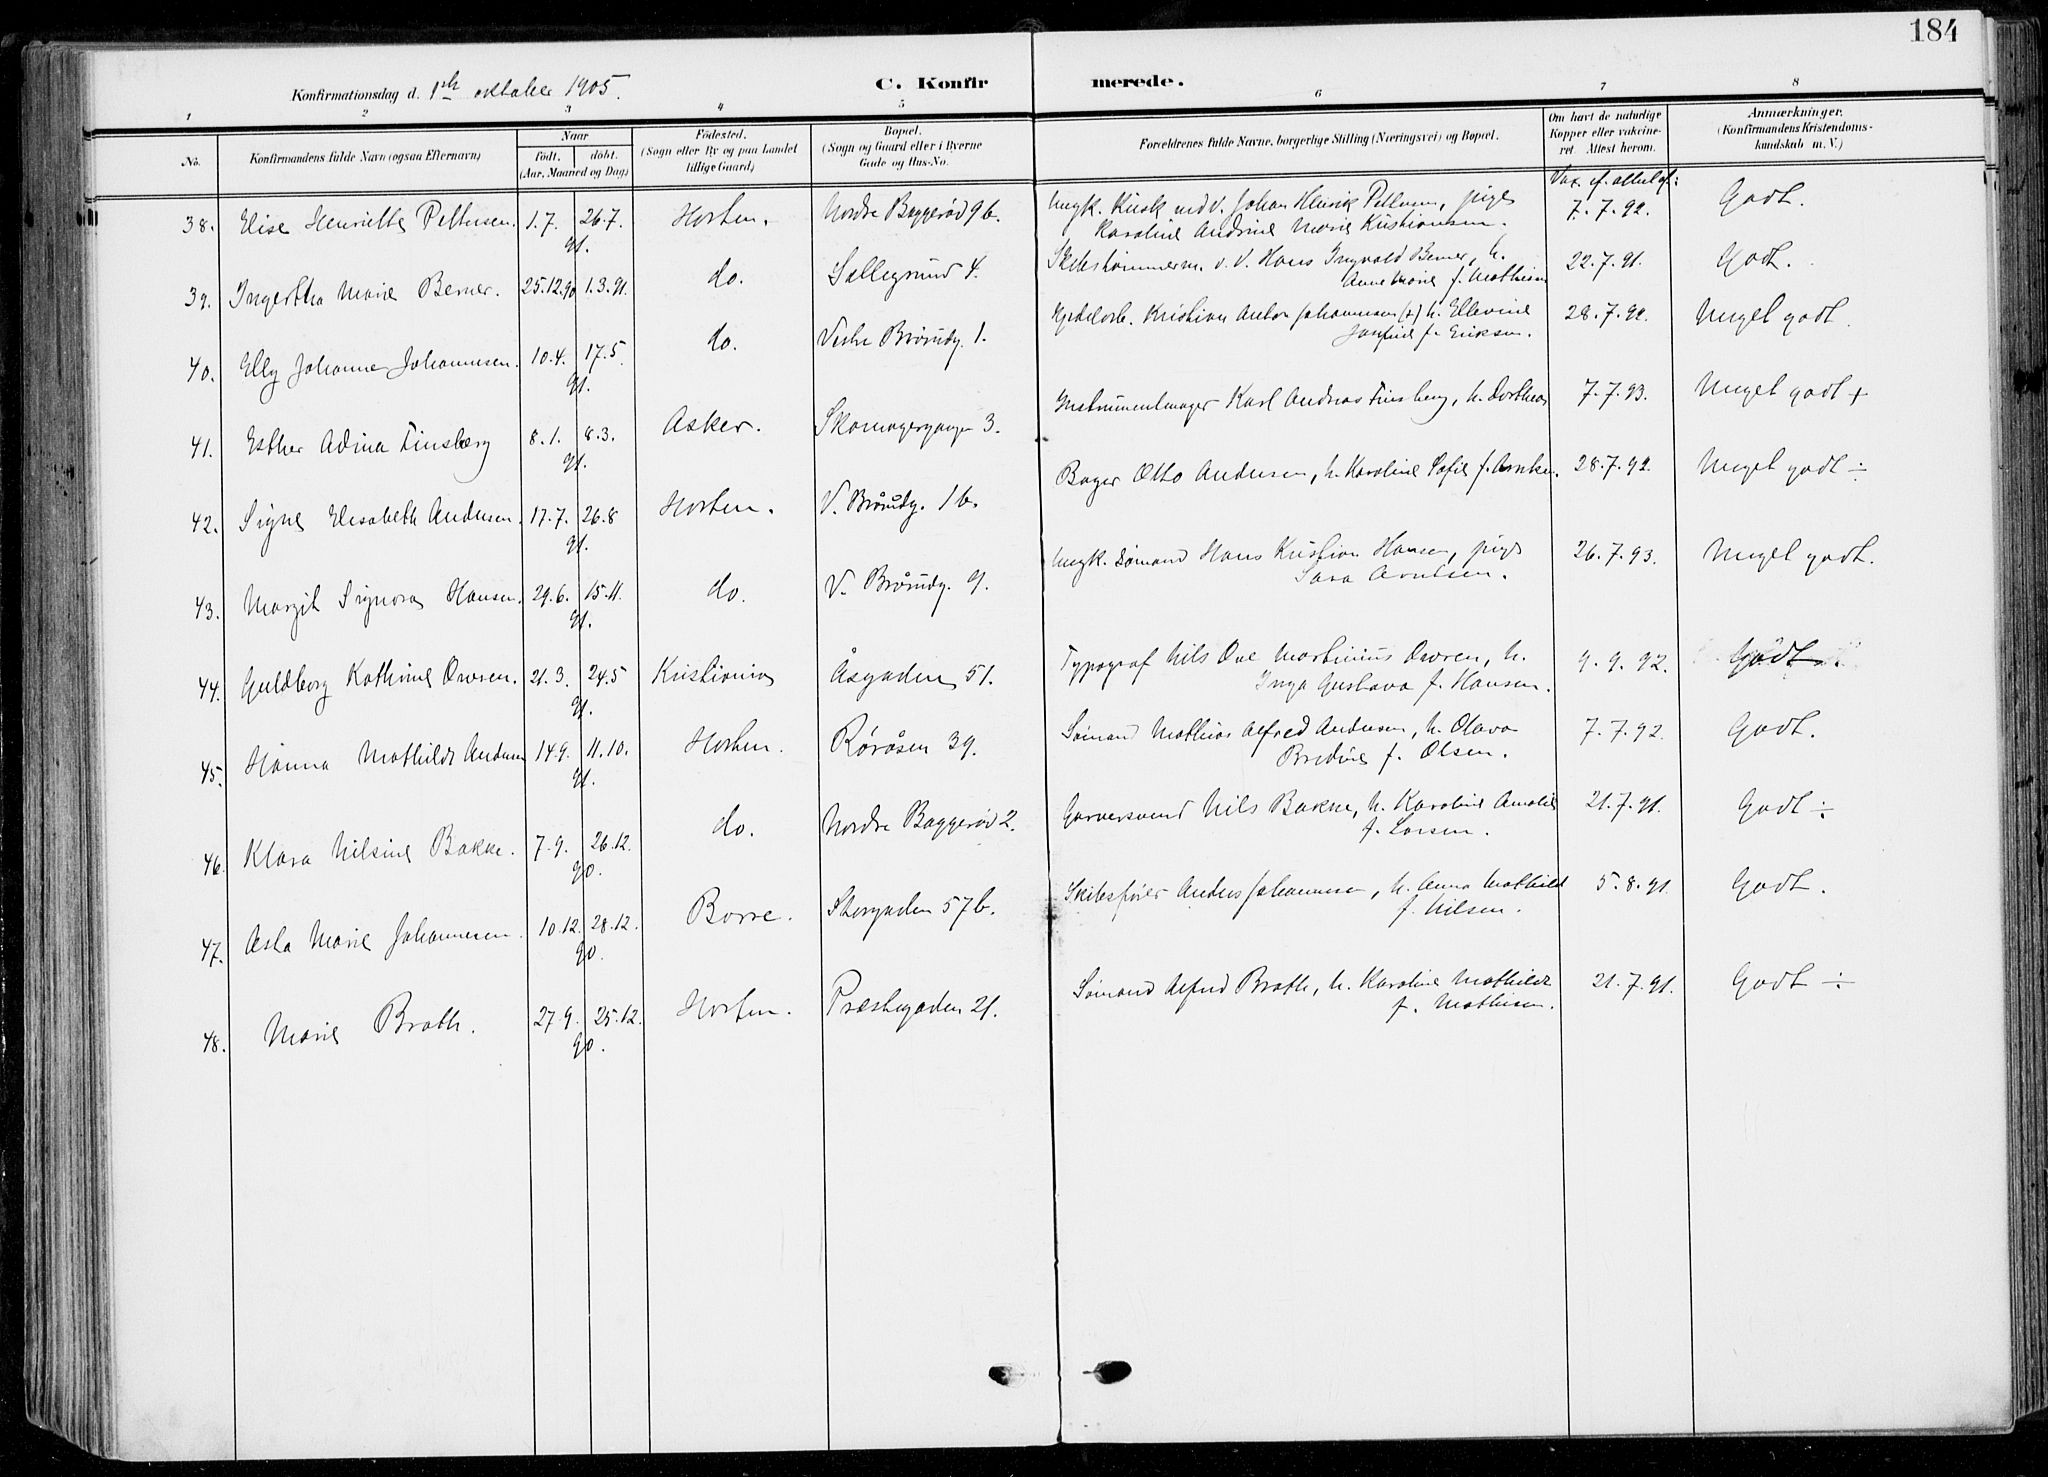 184
Konfirmationsdag d. 1ste oktober 1905. C. Konfirmerede.
1 2 3 4 5 6 7 8
No. Konfirmandens fulde Navn (ogsaa Efternavn) Naar født, døbt. (Aar, Maaned og Dag) Fødested. (Sogn eller By og paa Landet tillige Gaard) Bopæl. (Sogn og Gaard eller i Byerne Gade og Hus-No. Forældrenes fulde Navne, borgerlige Stilling (Næringsvei) og Bopæl. Om havt de naturlige Kopper eller vakcineret. Attest herom. Anmærkninger. (Konfirmandens Kristendomskundskab m. V.)
Vax. if. attest af:
38. Elise Henriette Pettersen. 1.7. 26.7. 91. Horten. Nordre Baggerød 9b. Ungk. Kusk ved V. Johan Henrik Pettersen, pige 7.7.92. Godt.
Karoline Andrine Marie Kristiansen.
39. Ingertha Marie Berner. 25.12.90 1.3.91. do. Sællegrund 4. Skibstømmerm. v. V. Hans Ingvald Berner, h. 22.7.91. Godt.
Anne Marie f. Mathisen
40. Elly Johanne Johannesen. 10.4. 17.5. 91. do. Vestre Brårudg. 1. Kjedelarb. Kristian Anton Johannesen (+) h. Ellevine 28.7.92. Meget godt.
Josefine f. Eriksen.
41. Esther Adina Finsberg 8.1. 8.3. 91. Asker. Skomagergangen 3. Instrumentmager Karl Andreas Finsberg, h. Dorthea 7.7.93. Meget godt +
42. Signe Elisabeth Andersen. 17.7. 26.8 91. Horten. V. Brårudg. 1b. Bager Otto Andersen, h. Karoline Sofie f. 28.7.92. Meget godt ÷
43. Margit Signora Hansen. 29.6. 15.11. 91. do. V. Brårudg. 9. Ungk. Sømand Hans Kristian Hansen, pige 26.7.93. Meget godt.
Sara Arntsen.
44. Guldborg Kathrine Owren. 21.3. 24.5 91. Kristiania Åsgaden 51. Typograf Nils Ove Martinius Owren, h. 9.9.92. Godt.
Inga Gustava f. Hansen.
45. Hanna Mathilde Andersen 14.9. 11.10. 91. Horten. Røråsen 39. Sømand Mathias Alfred Andersen, h. Olava 7.7.92. Godt.
Bredine f. Olsen.
46. Klara Nilsine Bakke. 7.9. 26.12. 90. do. Nordre Baggerød 2. Garversvend Nils Bakke, h. Karoline Amalie 21.7.91. Godt ÷
f. Larsen.
47. Asta Marie Johannesen. 10.12. 28.12. 90. Borre. Storgaden 57b. Skibsfører Anders Johannesen, h. Anna Mathilde 5.8.91. Godt.
f. Nilsen.
48. Marie Brath. 27.9. 25.12. 90. Horten. Prestegaden 21. Sømand Alfred Brath, h. Karoline Mathilde 21.7.91. Godt ÷
f. Mathisen.